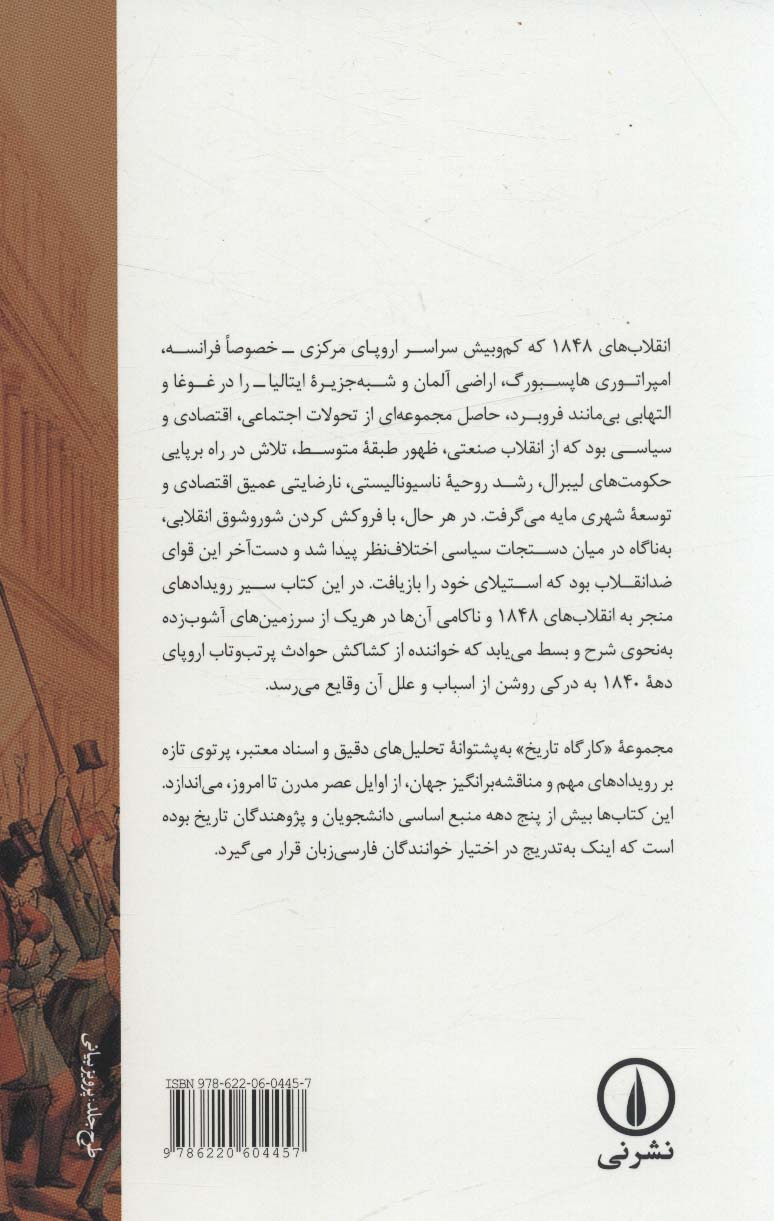 انقلاب‌های ۱۸۴۸ که کم‌وبیش سراسر اروپای مرکزی ــ خصوصاً فرانسه،
امپراتوری هاپسبورگ، اراضی آلمان و شبه‌جزیرهٔ ایتالیا ــ را در غوغا و
التهابی بی‌مانند فروبرد، حاصل مجموعه‌ای از تحولات اجتماعی، اقتصادی و
سیاسی بود که از انقلاب صنعتی، ظهور طبقهٔ متوسط، تلاش در راه برپایی
حکومت‌های لیبرال، رشد روحیهٔ ناسیونالیستی، نارضایتی عمیق اقتصادی و
توسعهٔ شهری مایه می‌گرفت. در هر حال، با فروکش کردن شوروشوق انقلابی،
به‌ناگاه در میان دستجات سیاسی اختلاف‌نظر پیدا شد و دست‌آخر این قوای
ضدانقلاب بود که استیلای خود را بازیافت. در این کتاب سیر رویدادهای
منجر به انقلاب‌های ۱۸۴۸ و ناکامی آن‌ها در هریک از سرزمین‌های آشوب‌زده
به‌نحوی شرح و بسط می‌یابد که خواننده از کشاکش حوادث پرتب‌وتاب اروپای
دههٔ ۱۸۴۰ به درکی روشن از اسباب و علل آن وقایع می‌رسد.
مجموعهٔ «کارگاه تاریخ» به‌پشتوانهٔ تحلیل‌های دقیق و اسناد معتبر، پرتوی تازه
بر رویدادهای مهم و مناقشه‌برانگیز جهان، از اوایل عصر مدرن تا امروز، می‌اندازد.
این کتاب‌ها بیش از پنج دهه منبع اساسی دانشجویان و پژوهندگان تاریخ بوده
است که اینک به‌تدریج در اختیار خوانندگان فارسی‌زبان قرار می‌گیرد.
طرح جلد: پرویز بیانی
ISBN 978-622-06-0445-7
9 786220 604457
نشرنی